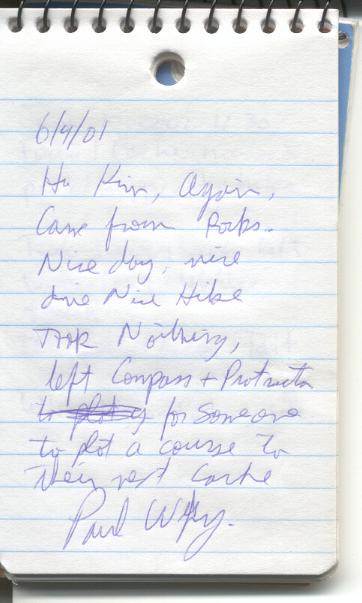 6/9/01
Hi Kim, Again,
Came from Rocks.
Nice day, nice
drive Nice Hike
TOOK Nothing,
left Compass + Protractor
for Someone
to plot a course to
their next Cache
Paul